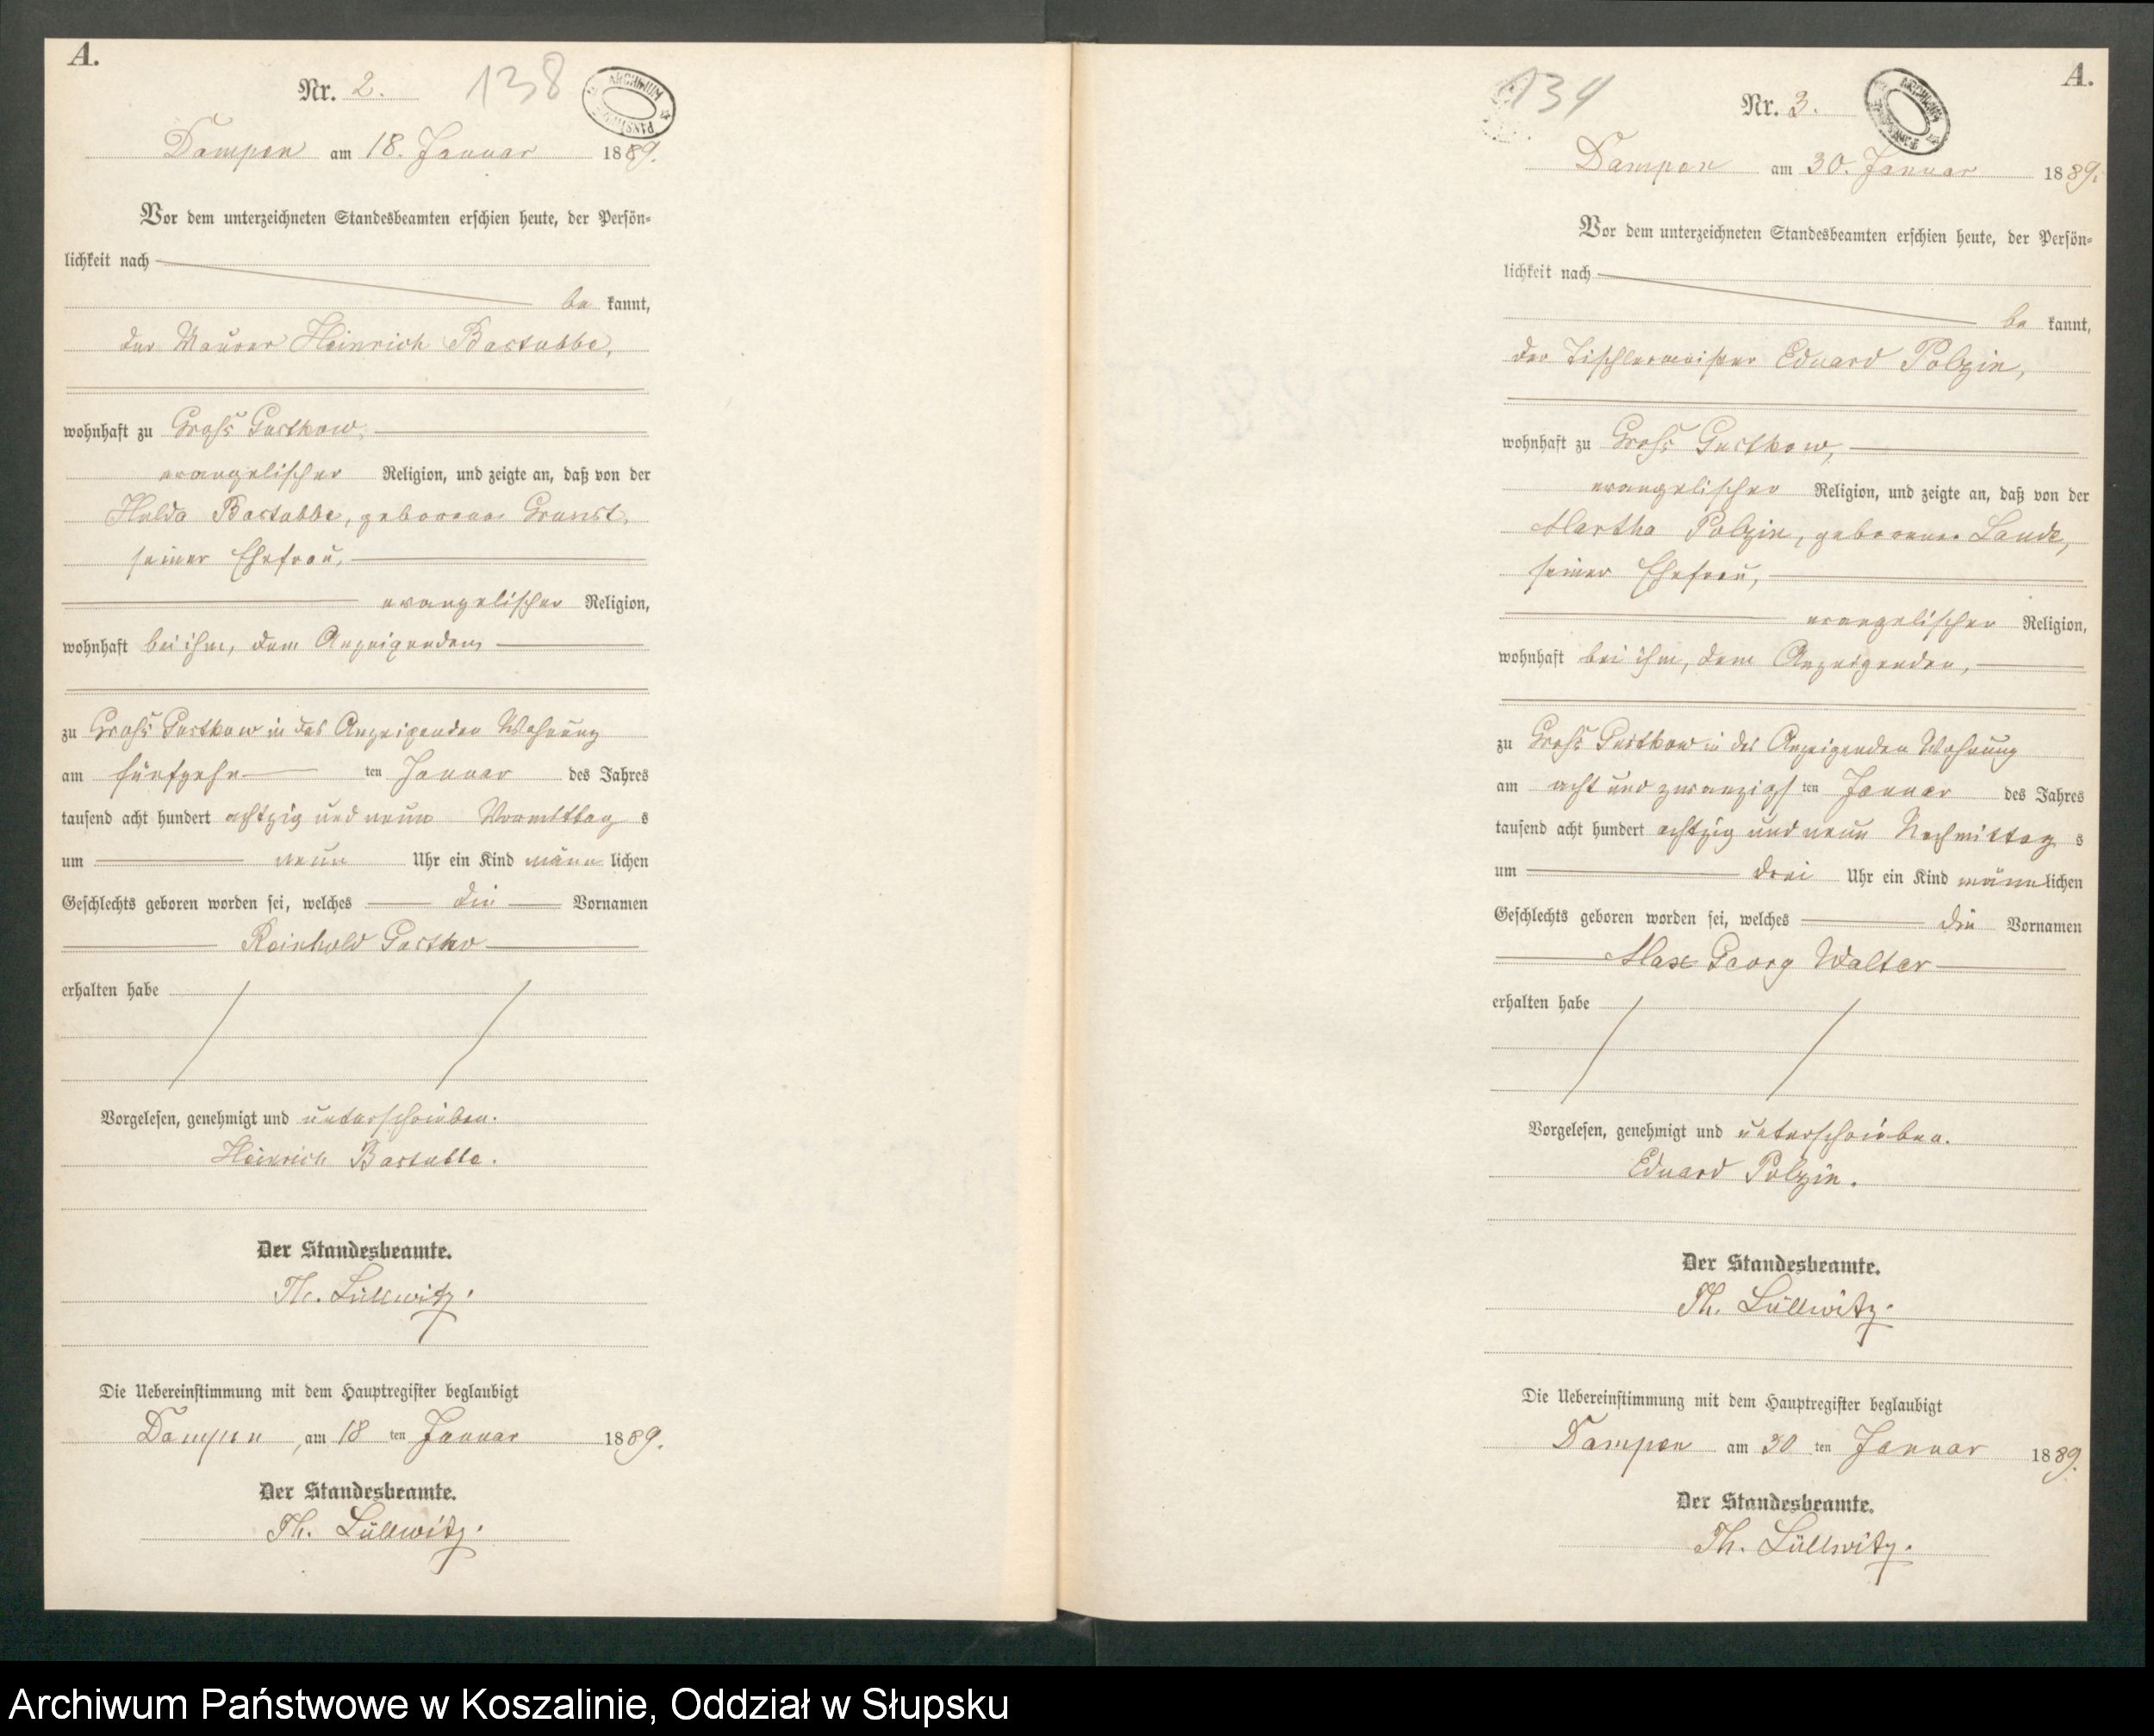 A.
Nr. 2. 138
ARCHIWUM PAŃSTW
Dampen am 18. Januar 1889.
Vor dem unterzeichneten Standesbeamten erschien heute, der Persön=
lichkeit nach
be kannt,
der Maurer Heinrich Bastubbe,
wohnhaft zu Groß Gustkow,
evangelischer Religion, und zeigte an, daß von der
Hulda Bastubbe, geborene Granst,
seiner Ehefrau,
evangelischer Religion,
wohnhaft bei ihm, dem Anzeigenden
zu Groß Gustkow in des Anzeigenden Wohnung
am fünfzehn ten Januar des Jahres
tausend acht hundert achtzig und neun Vormittag s
um neun Uhr ein Kind männ lichen
Geschlechts geboren worden sei, welches die Vornamen
Reinhold
erhalten habe
Vorgelesen, genehmigt und unterschrieben.
Heinrich Bastubbe.
Der Standesbeamte.
Th. Lüllwitz.
Die Uebereinstimmung mit dem Hauptregister beglaubigt
Dampen, am 18 ten Januar 1889.
Der Standesbeamte.
Th. Lüllwitz.
A.
134
Nr. 3.
ARCHIWUM
Dampen am 30. Januar 1889.
Vor dem unterzeichneten Standesbeamten erschien heute, der Persön=
lichkeit nach
be kannt,
der Tischlermeister Eduard Polzin,
wohnhaft zu Groß Gustkow,
evangelischer Religion, und zeigte an, daß von der
Martha Polzin, geborene Laude,
seiner Ehefrau,
evangelischer Religion,
wohnhaft bei ihm, dem Anzeigenden,
zu Groß Gustkow in des Anzeigenden Wohnung
am acht und zwanzigst ten Januar des Jahres
tausend acht hundert achtzig und neun Nachmittag s
um drei Uhr ein Kind männ lichen
Geschlechts geboren worden sei, welches die Vornamen
Max Georg Walter
erhalten habe
Vorgelesen, genehmigt und unterschrieben.
Eduard Polzin.
Der Standesbeamte.
Th. Lüllwitz.
Die Uebereinstimmung mit dem Hauptregister beglaubigt
Dampen am 30 ten Januar 1889.
Der Standesbeamte.
Th. Lüllwitz.
Archiwum Państwowe w Koszalinie, Oddział w Słupsku